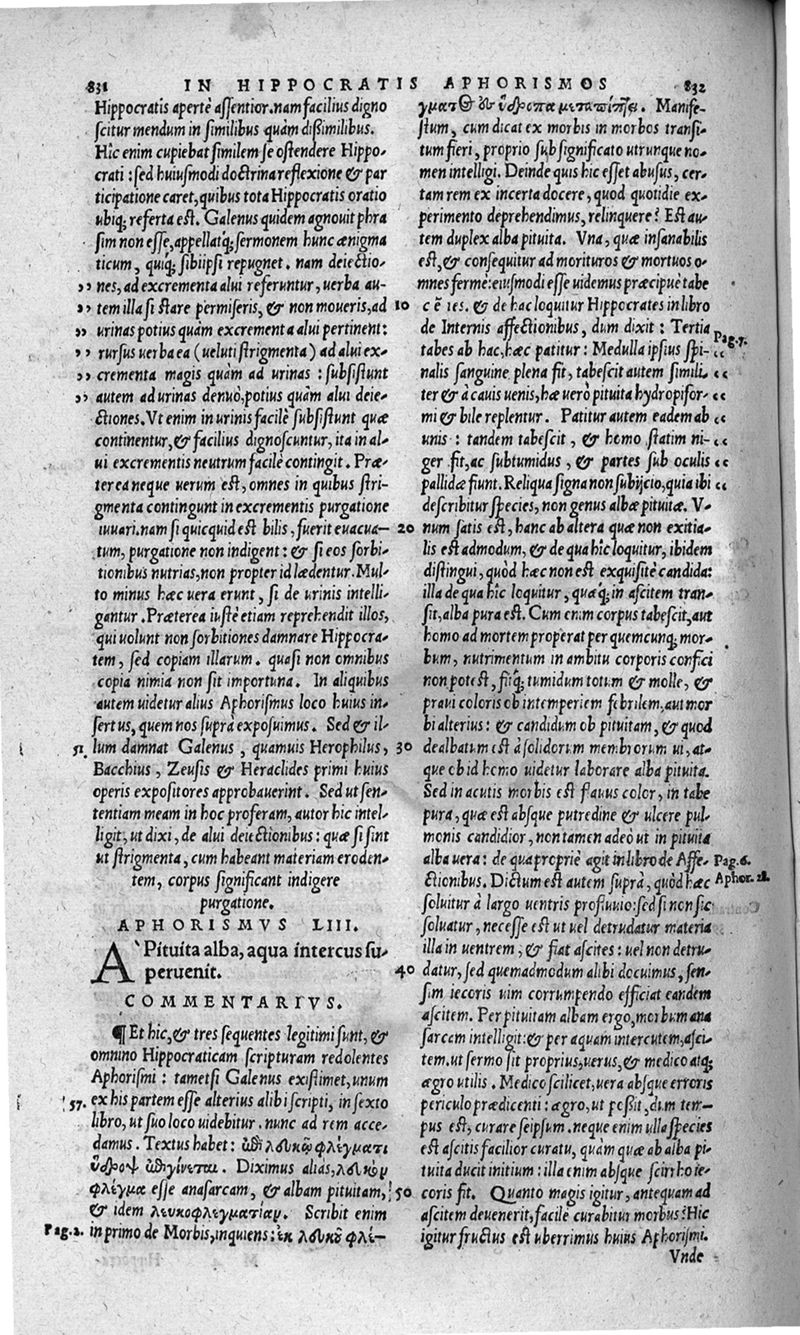 831 IN HIPPOCRATIS APHORISMOS 832
Hippocratis apertè assentior. nam facilius digno
scitur mendum in similibus quàm dißimilibus.
Hîc enim cupiebat similem se ostendere Hippo-
crati: sed huiusmodi doctrina reflexione & par
ticipatione caret, quibus tota Hippocratis oratio
ubiq; referta est. Galenus quidem agnouit phra
sim non esse, appellatq; sermonem hunc ænigma
ticum, quiq; sibiipsi repugnet. nam deiectio-
nes, ad excrementa alui referuntur, uerba au-
,, tem illa si stare permiseris, & non moueris, ad
,, urinas potius quàm excrementa alui pertinent:
,, rursus uerba ea (ueluti strigmenta) ad alui ex-
,, crementa magis quàm ad urinas: subsistunt
,, autem ad urinas denuò, potius quàm alui deie-
ctiones. Vt enim in urinis facilè subsistunt quæ
continentur, & facilius dignoscuntur, ita in al-
ui excrementis neutrum facilè contingit. Præ-
terea neque uerum est, omnes in quibus stri-
gmenta contingunt in excrementis purgatione
iuuari. nam si quicquid est bilis, fuerit euacua-
tum, purgatione non indigent: & si eos sorbi-
tionibus nutrias, non propter id lædentur. Mul-
to minus hæc uera erunt, si de urinis intelli-
gantur. Præterea iustè etiam reprehendit illos,
qui uolunt non sorbitiones damnare Hippocra-
tem, sed copiam illarum. quasi non omnibus
copia nimia non sit importuna. In aliquibus
autem uidetur alius Aphorismus loco huius in-
sertus, quem nos suprà exposuimus. Sed & il-
51. lum damnat Galenus, quamuis Herophilus,
Bacchius, Zeusis & Heraclides primi huius
operis expositores approbauerint. Sed ut sen-
tentiam meam in hoc proferam, autor hic intel-
ligit, ut dixi, de alui deiectionibus: quæ si sint
ut strigmenta, cum habeant materiam eroden-
tem, corpus significant indigere
purgatione.
APHORISMVS LIII.
A` Pituita alba, aqua intercus su-
peruenit.
COMMENTARIVS.
¶ Et hic, & tres sequentes legitimi sunt, &
omnino Hippocraticam scripturam redolentes
Aphorismi: tametsi Galenus existimet, unum
57. ex his partem esse alterius alibi scripti, in sexto
libro, ut suo loco uidebitur. nunc ad rem acce-
damus. Textus habet: ἐπὶ λευκῷ φλέγματι
ὕδρωψ ἐπιγίνεται. Diximus aliàs, λευκὸν
φλέγμα esse anasarcam, & albam pituitam,
& idem λευκοφλεγματίαν. Scribit enim
Pag.2. in primo de Morbis, inquiens: ἐκ λευκοῦ φλέ-
γματος ἐς ὕδρωπα μεταπίπτει. Manife-
stum, cum dicat ex morbis in morbos transi-
tum fieri, proprio sub significato utrunque no-
men intelligi. Deinde quis hic esset abusus, cer-
tam rem ex incerta docere, quod quotidie ex-
perimento deprehendimus, relinquere? Est au-
tem duplex alba pituita. Vna, quæ insanabilis
est, & consequitur ad morituros & mortuos o-
mnes fermè: eiusmodi esse uidemus præcipuè tabe
10 cētes. & de hac loquitur Hippocrates in libro
de Internis affectionibus, dum dixit: Tertia Pag.7.
tabes ab hac, hæc patitur: Medulla ipsius spi- ‹‹
nalis sanguine plena fit, tabescit autem simili- ‹‹
ter & à cauis uenis, hæ uerò pituita hydropifor- ‹‹
mi & bile replentur. Patitur autem eadem ab ‹‹
unis: tandem tabescit, & homo statim ni- ‹‹
ger fit, ac subtumidus, & partes sub oculis ‹‹
pallidæ fiunt. Reliqua signa non subijcio, quia ibi ‹‹
describitur species, non genus albæ pituitæ. V-
20 num satis est, hanc ab altera quæ non exitia-
lis est admodum, & de qua hîc loquitur, ibidem
distingui, quòd hæc non est exquisitè candida:
illa de qua hîc loquitur, quæq; in ascitem tran-
sit, alba pura est. Cum enim corpus tabescit, aut
homo ad mortem properat per quemcunq; mor-
bum, nutrimentum in ambitu corporis confici
non potest, fitq; tumidum totum & molle, &
praui coloris ob intemperiem febrilem, aut mor
bi alterius: & candidum ob pituitam, & quod
30 dealbatum est à solidorum membrorum ui, at-
que ob id homo uidetur laborare alba pituita.
Sed in acutis morbis est flauus color, in tabe
pura, quæ est absque putredine & ulcere pul-
monis candidior, non tamen adeò ut in pituita
alba uera: de qua propriè agit in libro de Affe- Pag.6.
ctionibus. Dictum est autem suprà, quòd hæc Aphor.28.
soluitur à largo uentris profluuio: sed si non sic
soluatur, necesse est ut uel detrudatur materia
illa in uentrem, & fiat ascites: uel non detru-
40 datur, sed quemadmodum alibi docuimus, sen-
sim iecoris uim corrumpendo efficiat eandem
ascitem. Per pituitam albam ergo, morbum ana
sarcam intelligit: & per aquam intercutem, asci-
tem. ut sermo sit proprius, uerus, & medico atq;
ægro utilis. Medico scilicet, uera absque erroris
periculo prædicenti: ægro, ut possit, dum tem-
pus est, curare seipsum. neque enim ulla species
est ascitis facilior curatu, quàm quæ ab alba pi-
tuita ducit initium: illa enim absque scirrho ie-
50 coris fit. Quanto magis igitur, antequam ad
ascitem deuenerit, facilè curabitur morbus? Hic
igitur fructus est uberrimus huius Aphorismi.
Vnde